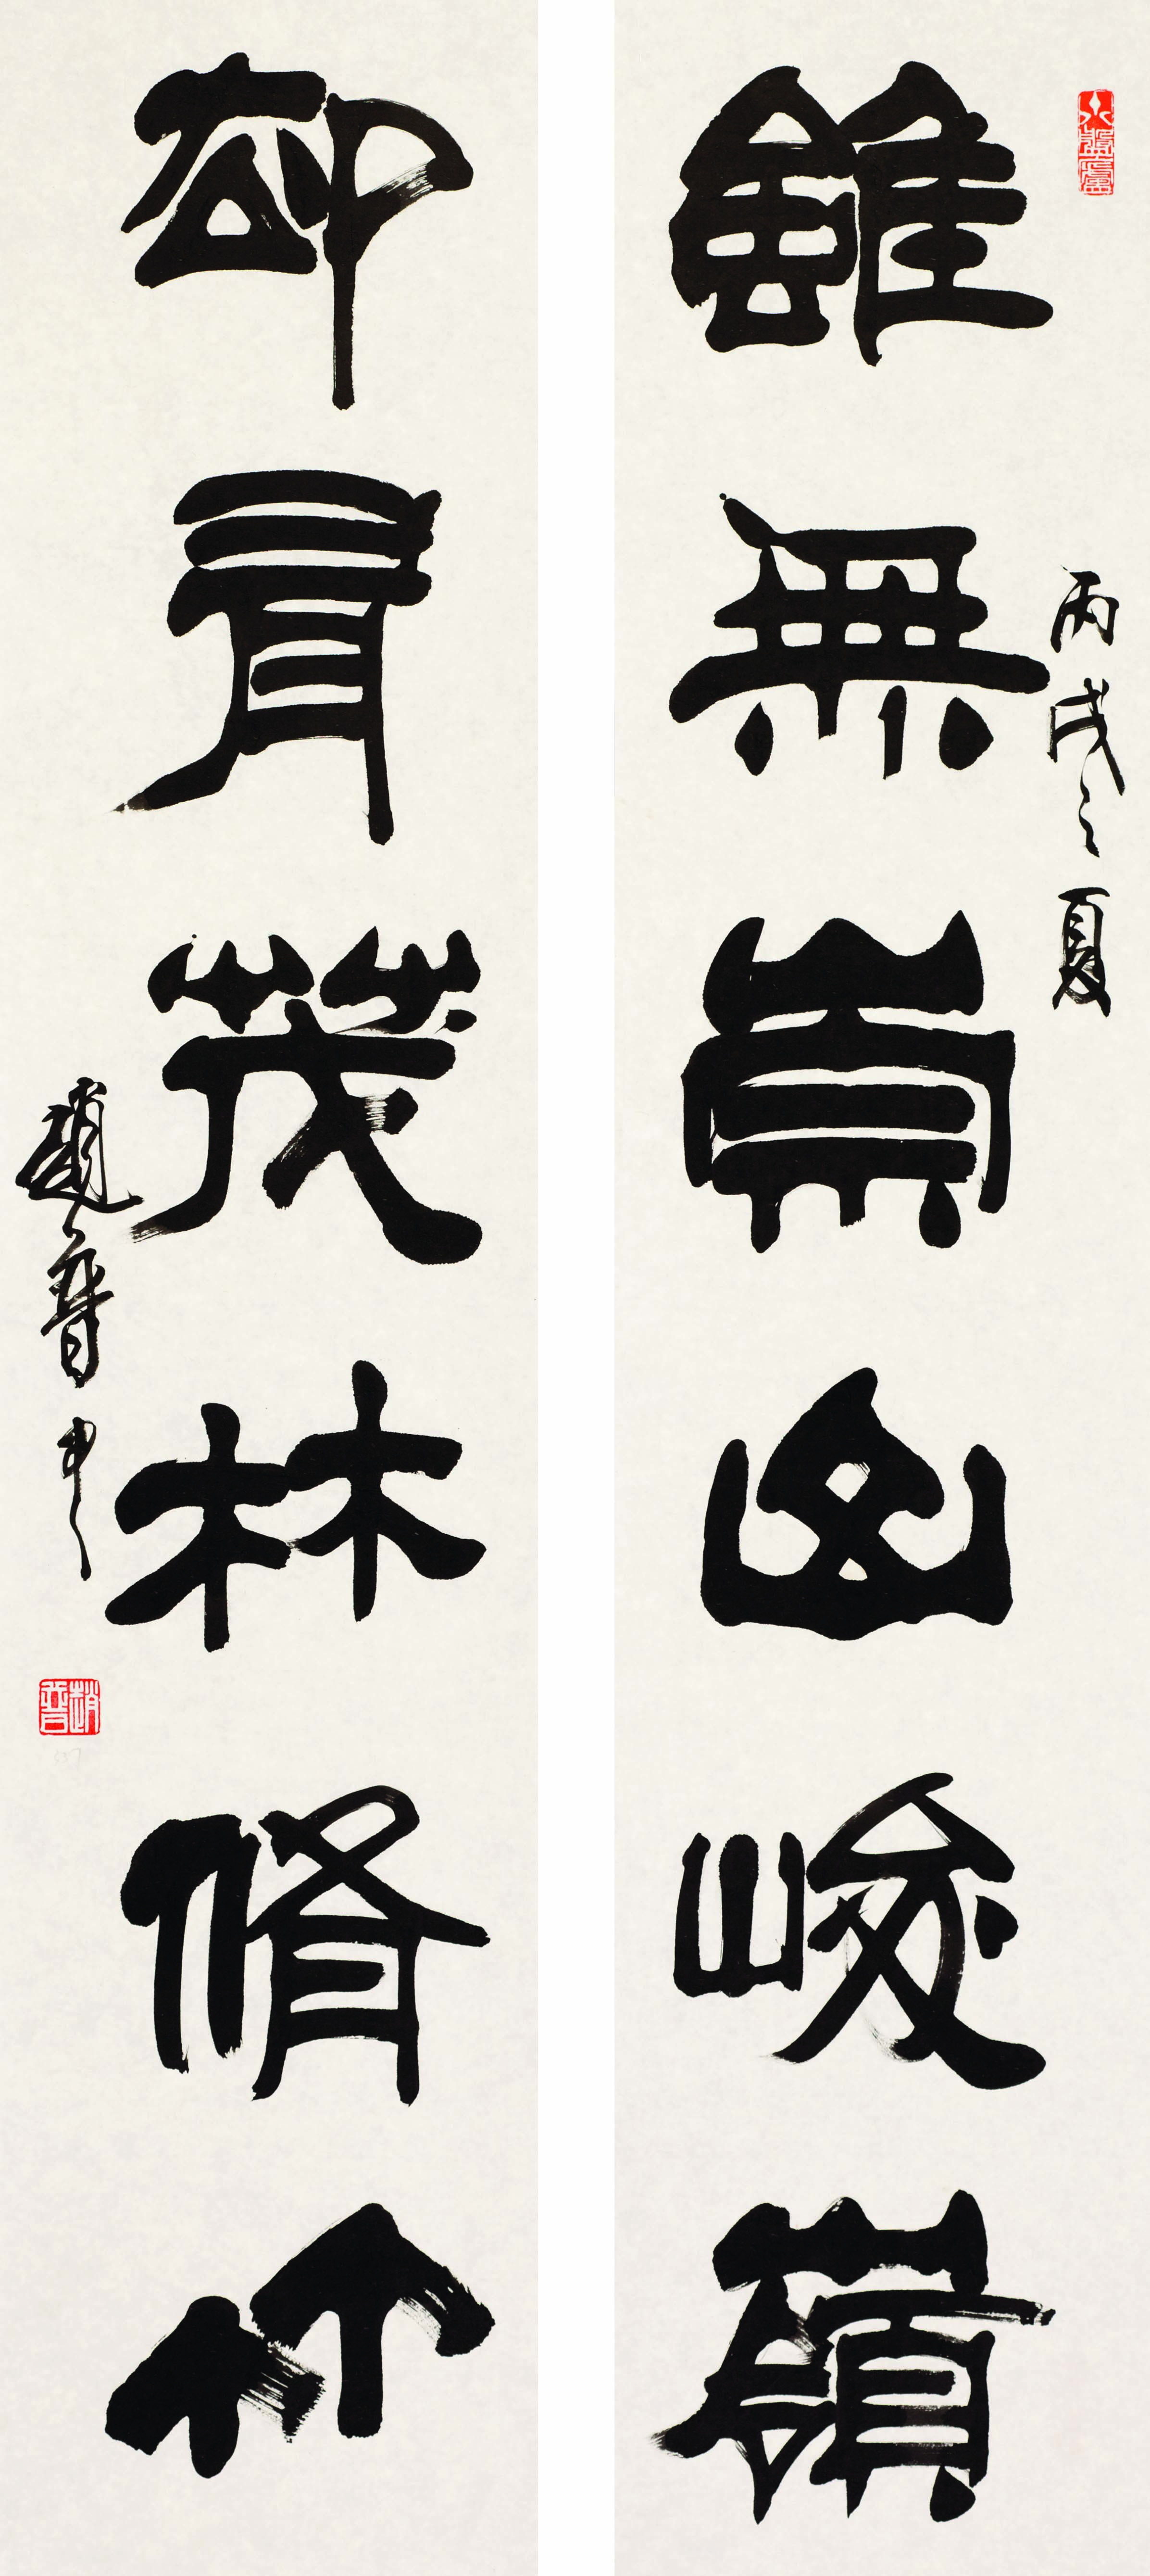 丙戌之夏
雖無崇山峻嶺
却有茂林脩竹
趙普
趙普